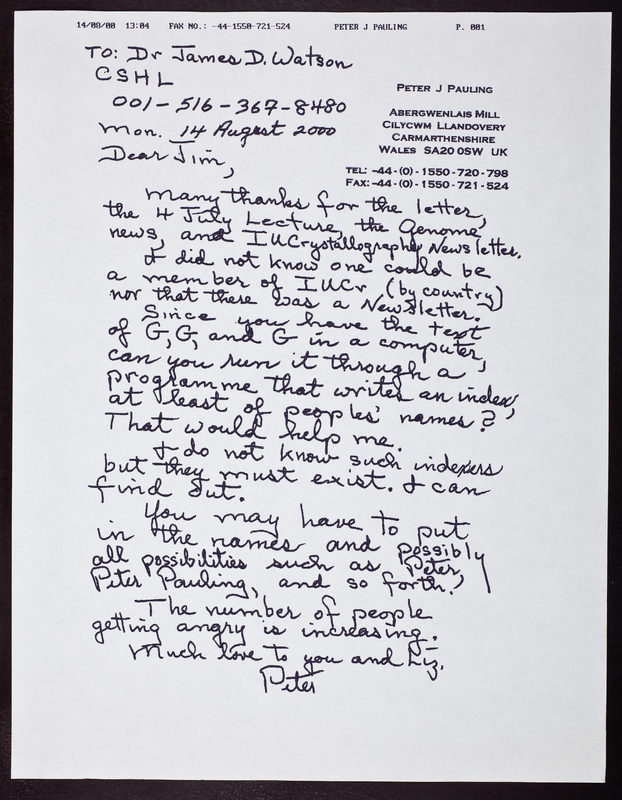 14/08/00 13:04 FAX NO.: -44-1550-721-524 PETER J PAULING P. 001
TO: Dr James D. Watson
CSHL
001-516-367-8480
Mon. 14 August 2000
Dear Jim,
PETER J PAULING
ABERGWENLAIS MILL
CILYCWM LLANDOVERY
CARMARTHENSHIRE
WALES SA20 0SW UK
TEL: -44-(0)-1550-720-798
FAX: -44-(0)-1550-721-524
Many thanks for the letter,
the 4 July Lecture, the Genome
news, and IUCrystallography Newsletter.
I did not know one could be
a member of IUCr (by country)
nor that there was a Newsletter.
Since you have the text
of G, G, and G in a computer,
can you run it through a
programme that writes an index,
at least of peoples' names?
That would help me.
I do not know such indexers
but they must exist. I can
find out.
You may have to put
in the names and possibly
all possibilities such as Peter,
Peter Pauling, and so forth.
The number of people
getting angry is increasing.
Much love to you and Liz,
Peter